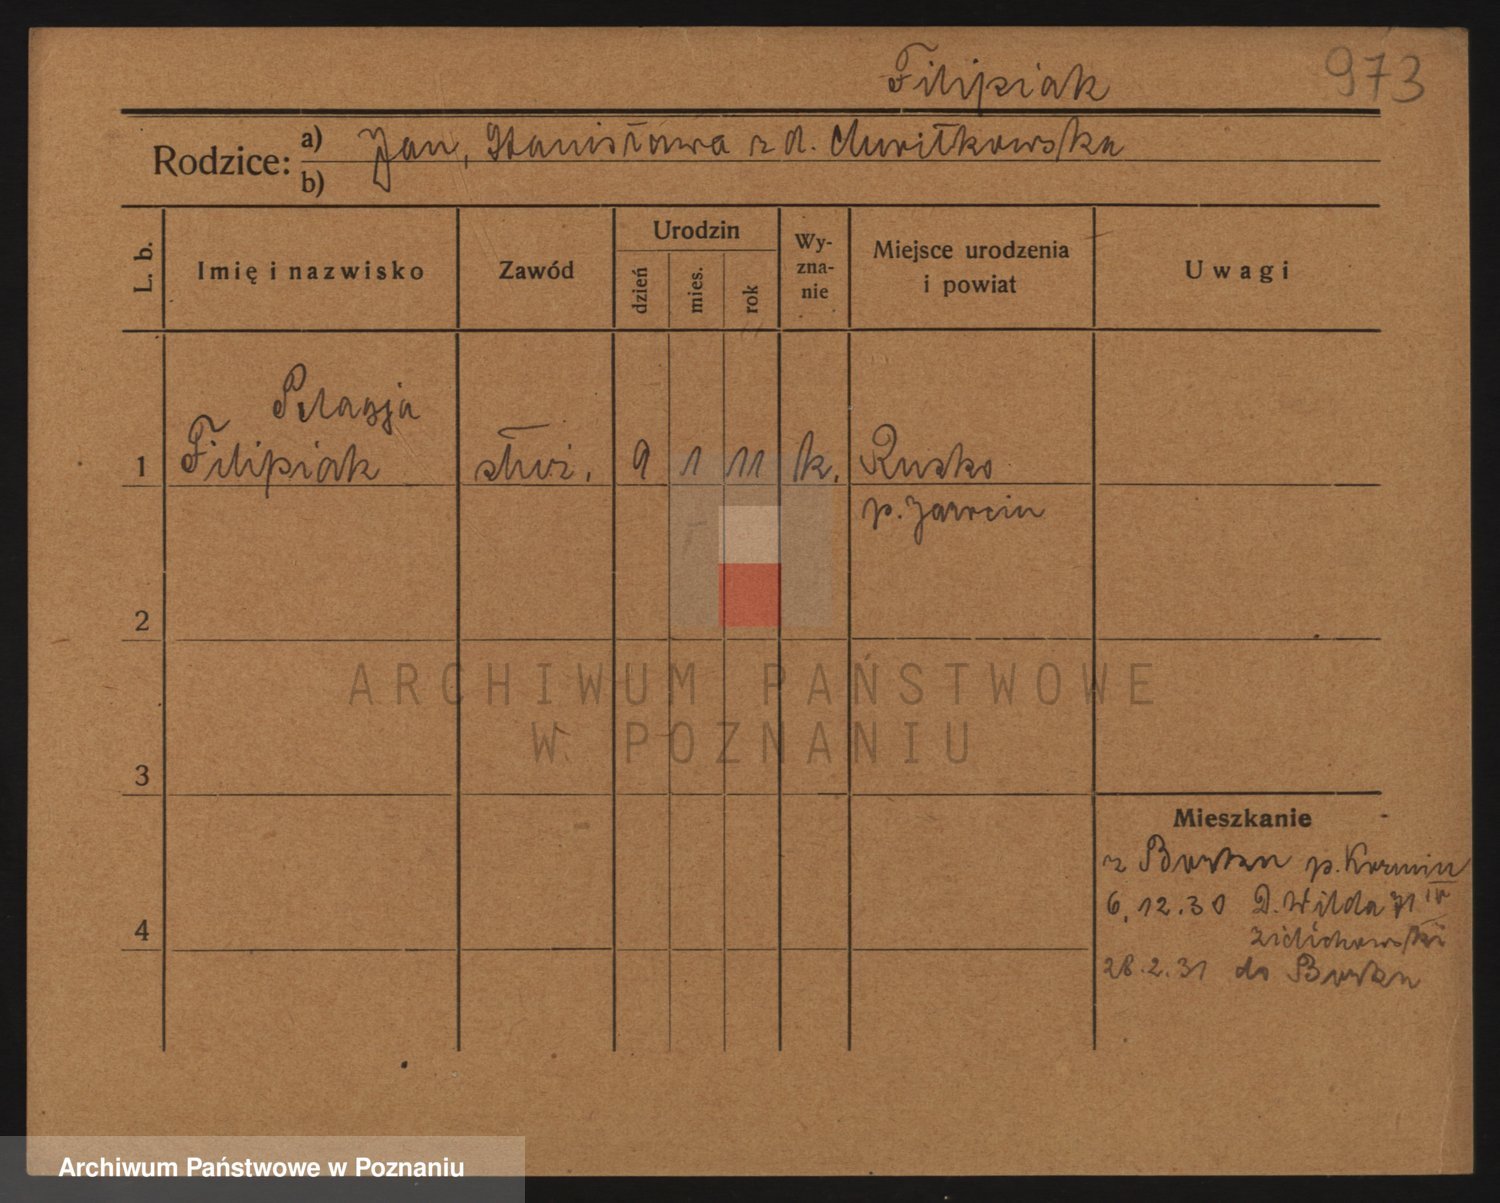 Filipiak
973
Rodzice: a) Jan, Stanisława z d. Chwiłkowska
b)
L. b.
Imię i nazwisko
Zawód
Urodzin
dzień
mies.
rok
Wy-
zna-
nie
Miejsce urodzenia
i powiat
Uwagi
Pelagja
1 Filipiak służ. 9 1 11 k. Rusko
p. Jarocin
2
3
4
ARCHIWUM PAŃSTWOWE
W POZNANIU
Mieszkanie
z Borku p. Koźmin
6.12.30 D. Wilda 71 IV
28.2.31 do Borku
Archiwum Państwowe w Poznaniu